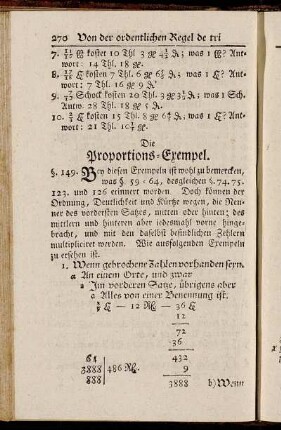 270 Von der ordentlichen Regel de tri
kostet 10 Thl. 3 ge was 1 Ant-
wort: 14 Thl. 18 ge.
kosten 7 Thl. 6 ge was 1 Ant-
wort: 7 Thl. 16 ge
Schock kosten 20 Thl. 3 ge was 1 Sch.
Antw. 28 Thl. 18 ge
kosten 15 Thl. 8 ge was 1 Ant-
wort: 21 Thl. ge.
Die
Proportions-Exempel.
§. 149. Bey diesen Exempeln ist wohl zu bemercken,
was §. 59-64, desgleichen §. 74. 75.
123. und 126 erinnert worden. Doch können der
Ordnung, Deutlichkeit und Kürtze wegen, die Nen-
ner des vordersten Satzes, mitten oder hinten; des
mittlern und hinteren aber jedesmahl vorne hinge-
bracht, und mit den daselbst befindlichen Zehlern
multipliciret werden. Wie aus folgenden Exempeln
zu ersehen ist.
1. Wenn gebrochene Zahlen vorhanden seyn.
A An einem Orte, und zwar
a Im vorderen Satze, übrigens aber
a Alles von einer Benennung ist.
— 12 — 36
12
72
36
432
3888 | 486 9
888 3888 b) Wenn